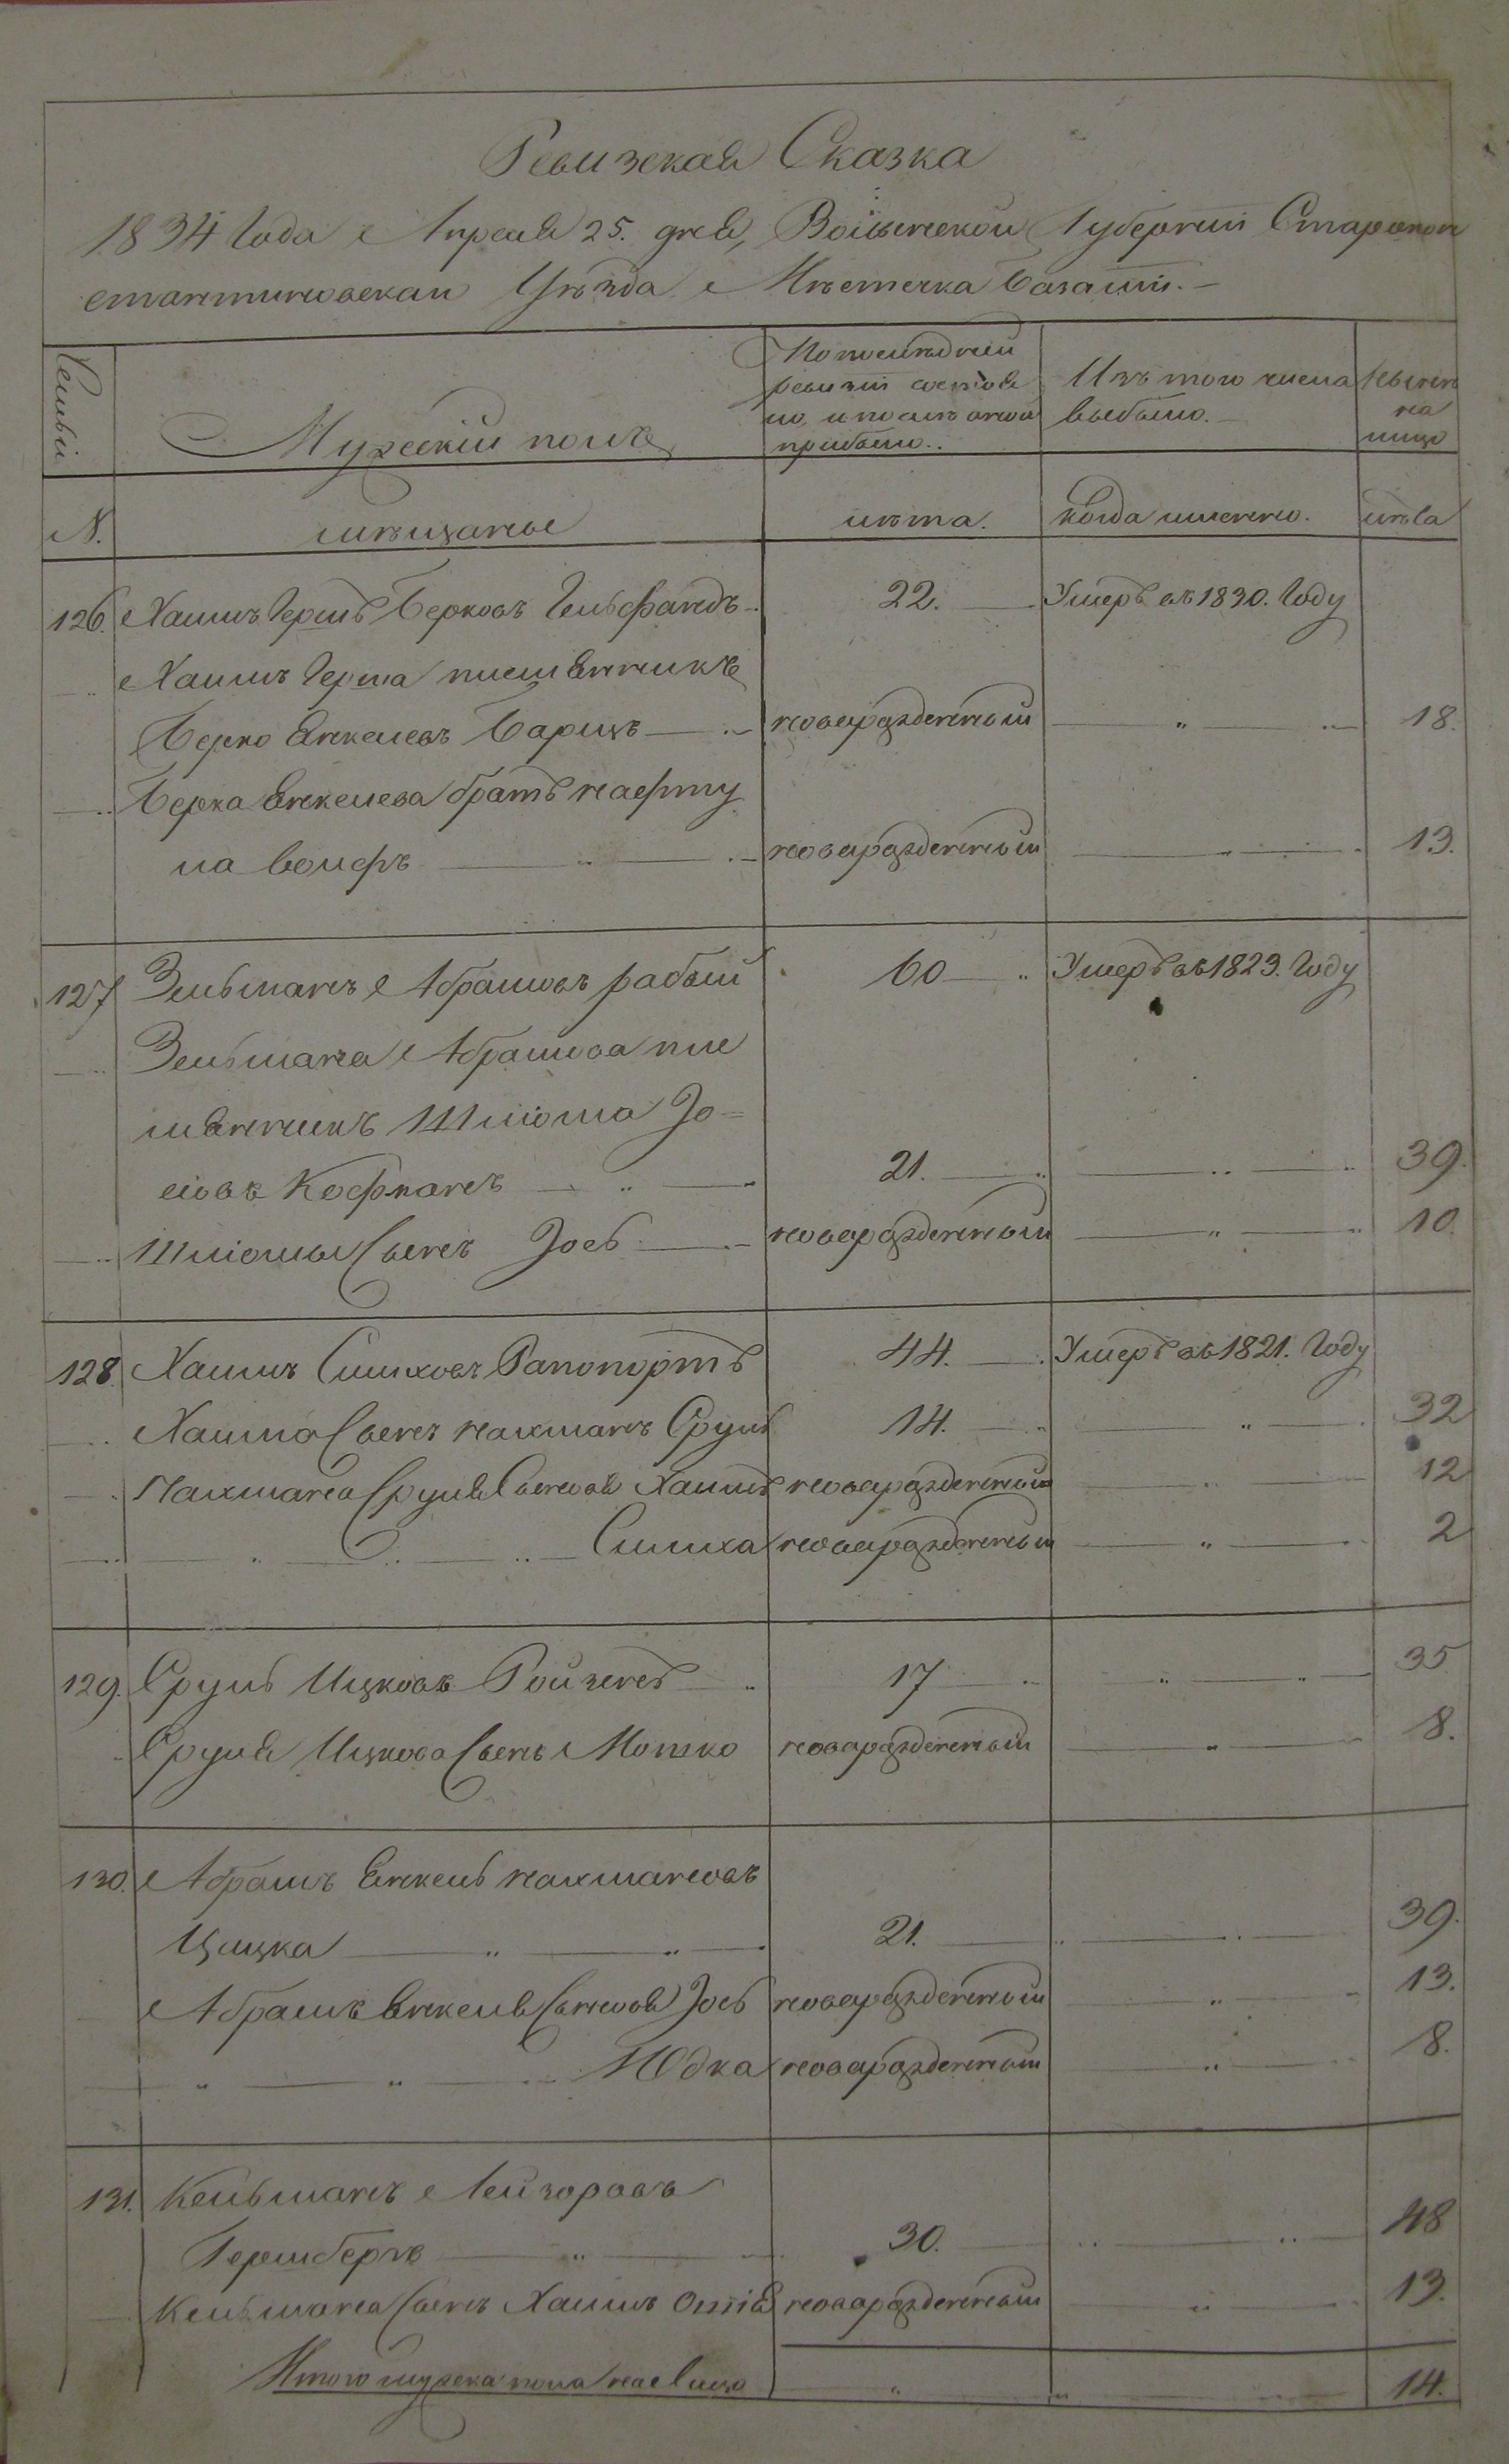 Ревизская Сказка
1834 Года Апреля 25. дня, Волынской Губернии Старокон
стантиновскаго Уѣзда Мѣстечка Базалiи. —
Семьи
Мужеский полъ
По последней
ревизии состоя
ло, и после оной
прибыло..
Изъ того числа
выбыло. —
Нынѣ
на
лицо
N.
мѣщане
лѣта.
когда именно.
лѣта
126. Хаимъ Гершъ Берковъ Гельфандъ 22. Умеръ въ 1830. Году
Хаимъ Герша племянникъ
Берко Янкелевъ Барицъ новорожденный " 18.
Берка Янкелева братъ Нафту
ла Вольфъ " новорожденный " 13.
127 Зельманъ Абрамовъ рабый 60 Умеръ въ 1823. Году
Зельмана Абрамова пле
мянникъ Шлiома Iо=
сiовъ Кофманъ " 21. " 39.
Шлiомы Сынъ Iось новорожденный " 10.
128. Хаимъ Симховъ Рапопортъ 44. Умеръ въ 1821. Году
Хаима Сынъ Нахманъ Сруль 14. " 32
Нахмана Сруля Сыновья Хаимъ новорожденный " 12
" " " Симха новорожденный " 2
129. Сруль Ицковъ Ройзенъ 17 " " 35
Сруля Ицкова Сынъ Мошко новорожденный " 8.
130. Абрамъ Янкель Нахмановъ
Цицка " " 21. " 39.
Абрамъ Янкеля Сыновья Iось новорожденный " 13.
" " Юдка новорожденный " 8.
131. Кельманъ Лейзоровъ
Гершбергъ " 30. " " 48
Кельмана Сынъ Хаимъ новорожденный " 13.
Итого мужеска пола налицо " " 14.